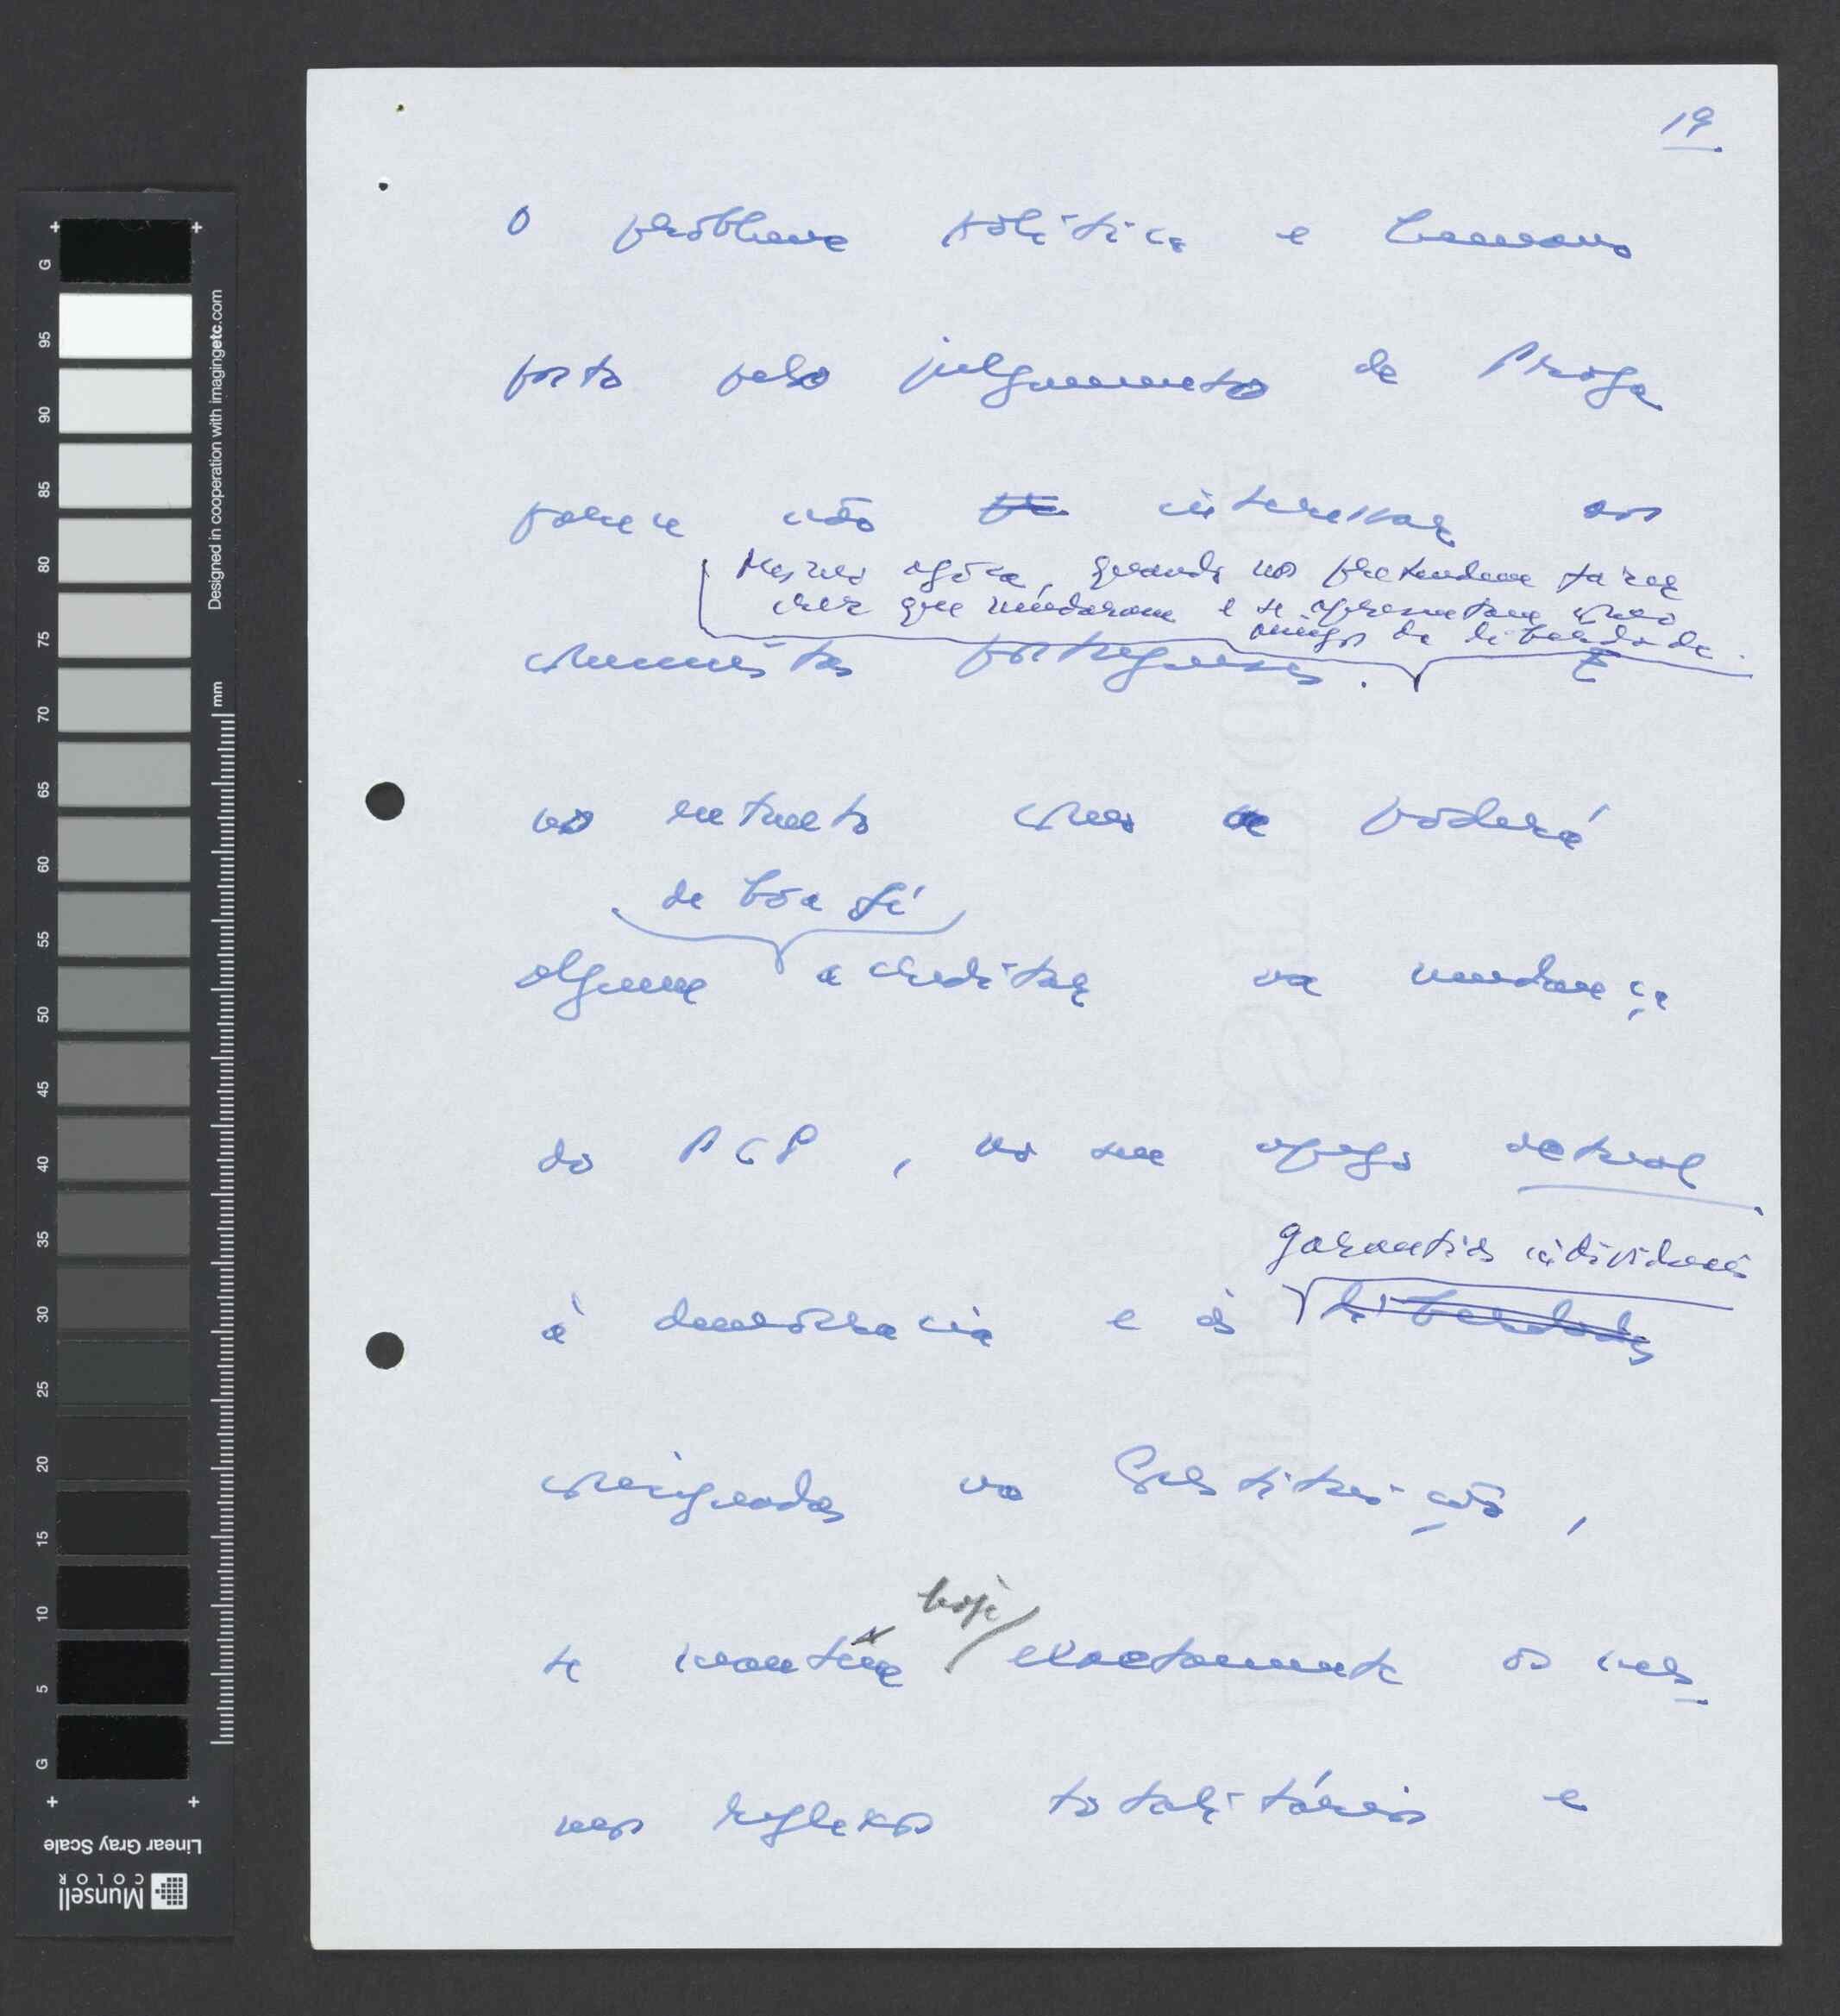 19
O problema político e humano
posto pelo julgamento de Praga
parece não interessar aos
Mesmo agora, quando nos pretendem fazer
crer que mudaram e se apresentam como
amigos da liberdade.
comunistas portugueses. E
no entanto como se poderá
de boa fé
alguma acreditar na mudança
do PCP, no seu apego actual
garantias individuais
à democracia e às liberdades
consignadas na Constituição,
hoje
se mantêm exactamente os mes-
mos reflexos totalitários e
Designed in cooperation with imagingetc.com
mm
G 95 90 85 80 75 70 65 60 55 50 45 40 35 30 25 20 15 10 5 G
Linear Gray Scale
Munsell
COLOR